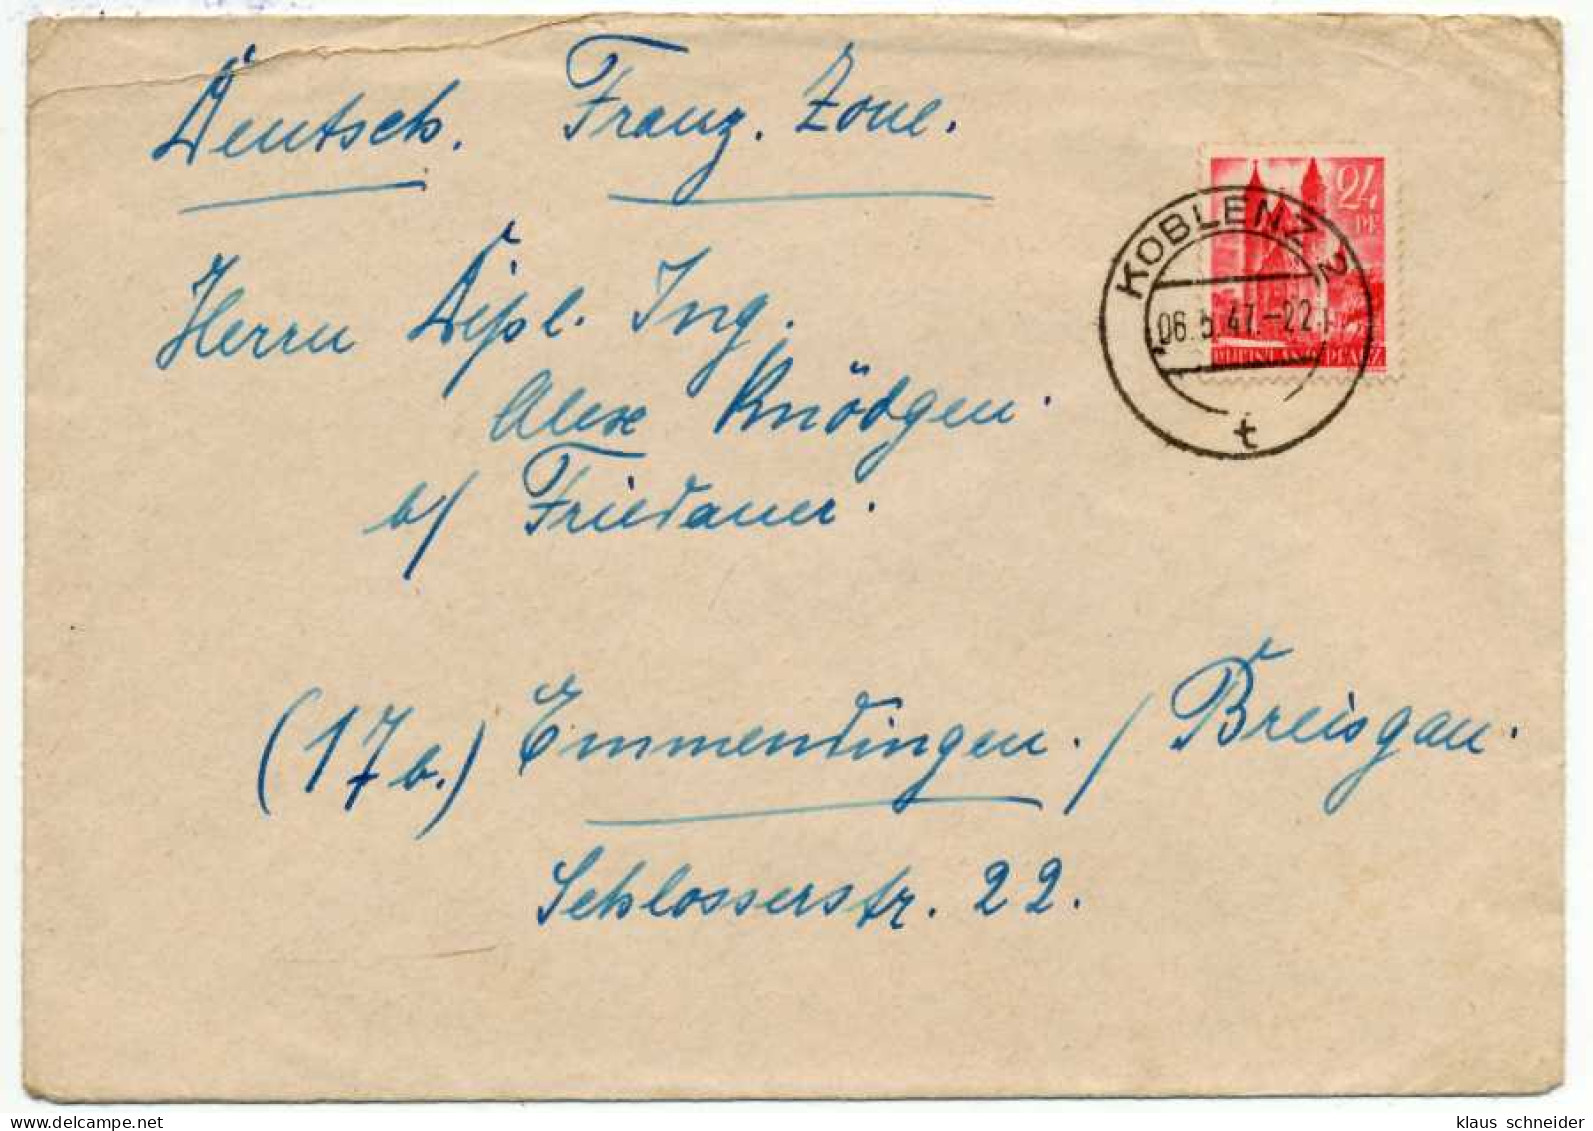 Deutsch. Franz. Zone.
24
PF
KOBLENZ 2
06.5.47.-22
RHEINLAND-PFALZ
t
Herrn Dipl. Ing.
Alex Knödgen.
b/ Friedauer.
(17b.) Emmendingen. / Breisgau.
Schlosserstr. 22.
klaus schneider